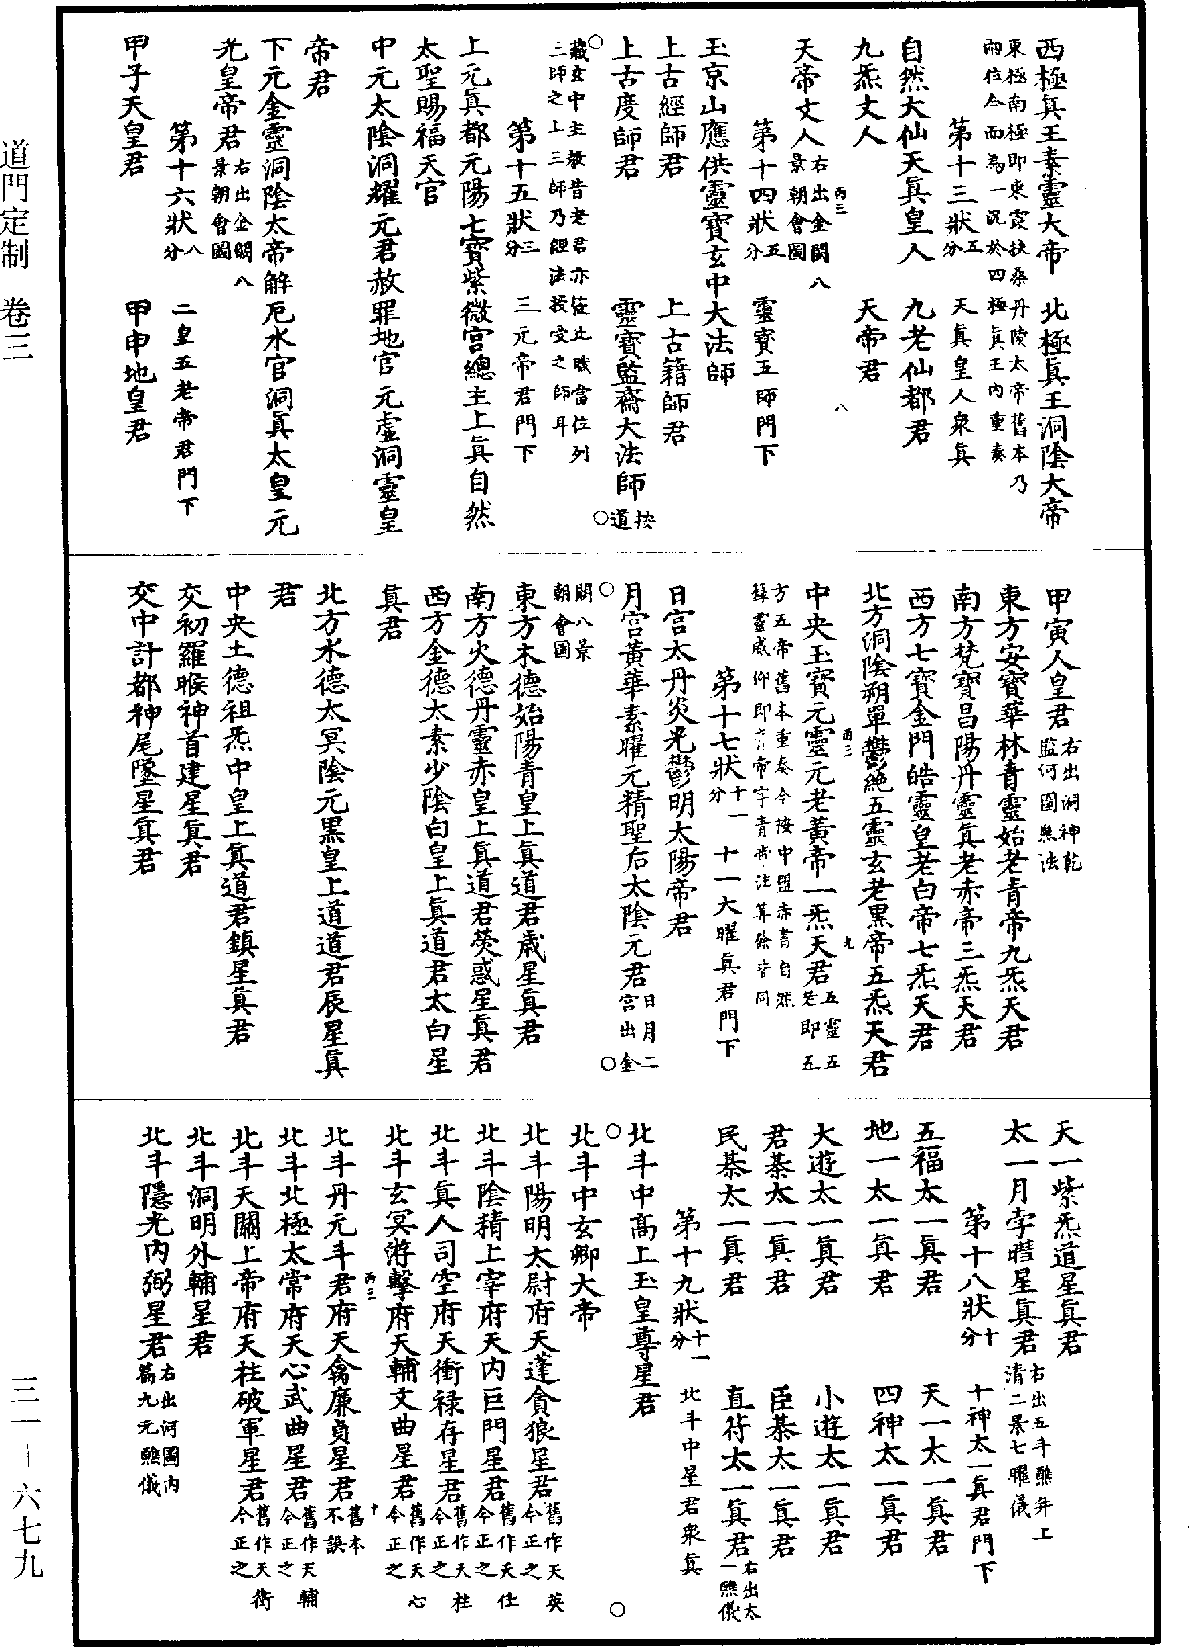 西極眞王素靈大帝　北極眞王洞陰大帝
東極南極即東霞扶桑丹陵太帝舊本乃
兩位合而為一況於四極眞王內重奏
第十三狀五分　天眞皇人衆眞
自然大仙天眞皇人　九老仙都君
九炁丈人　天帝君
天帝丈人右出金闕八景朝會圖
丙三　八
第十四狀五分　靈寳五師門下
玉京山應供靈寳玄中大法師
上古經師君　上古籍師君
上古度師君　靈寳監齋大法師按道
藏玄中主按昔老君亦位此職當位列
三師之上三師乃經法授受之師耳
第十五狀三分　三元帝君門下
上元眞都元陽七寳紫微宫總主上眞自然
太聖賜福天官
中元太陰洞耀元君赦罪地官元虛洞靈皇
帝君
下元金靈洞陰太帝解厄水官洞眞太皇元
光皇帝君右出金闕八景朝會圖
第十六狀八分　二皇五老帝君門下
甲子天皇君　甲申地皇君
甲寅人皇君右出洞神乾監何圖醮法
東方安寳華林青靈始老青帝九炁天君
南方梵寳昌陽丹靈眞老赤帝三炁天君
西方七寳金門皓靈皇老白帝七炁天君
北方洞陰朔單鬱絶五靈玄老黒帝五炁天君
丙三　九
中央玉寳元靈元老黃帝一炁天君五靈五老即五
方五帝舊本重奏今按中盟赤書自然
第十七狀十一分　十一大曜眞君門下
日宫太丹炎光鬱明太陽帝君
月宫黃華素曜元精聖后太陰元君日月二宫出金
闕八景朝會圖
東方木德始陽青皇上眞道君歲星眞君
南方火德丹靈赤皇上眞道君熒惑星眞君
西方金德太素少陰白皇上眞道君太白星
眞君
北方水德太冥陰元黒皇上道道君辰星眞
君
中央土德祖炁中皇上眞道君鎮星眞君
交初羅睺神首建星眞君
交中計都神尾墜星眞君
天一紫炁道星眞君
太一月孛彗星眞君右出五斗醮并上清二景七曜儀
第十八狀十分　十神太一眞君門下
五福太一眞君　天一太一眞君
地一太一眞君　四神太一眞君
大遊太一眞君　小遊太一眞君
君碁太一眞君　臣碁太一眞君
民碁太一眞君　直符太一眞君右出太一醮儀
第十九狀十一分　北斗中星君衆眞
北斗中髙上玉皇尊星君
北斗中玄卿大帝
北斗陽明太尉府天蓬貪狼星君舊作天英今正之
北斗陰精上宰府天內巨門星君舊作天任今正之
北斗眞人司空府天衝禄存星君舊作天柱今正之
北斗玄冥游擊府天輔文曲星君舊作天心今正之
丙三　十
北斗丹元斗君府天禽廉貞星君舊本不誤
北斗北極太常府天心武曲星君舊作天輔今正之
北斗天關上帝府天柱破軍星君舊作天衝今正之
北斗洞明外輔星君
北斗隱光內弼星君右出河圖內篇九元醮儀
道門定制　卷三
三一－六七九